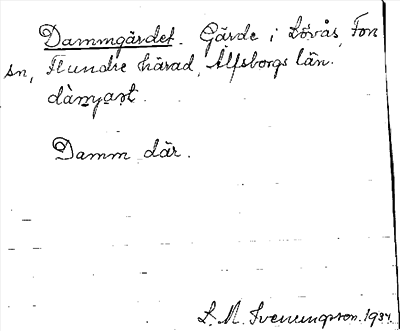 Dammgärdet. Gärde i Lövås, Fors
sn, Flundre härad, Älfsborgs län.
Damm där.
S. M. Svenungsson. 1934.